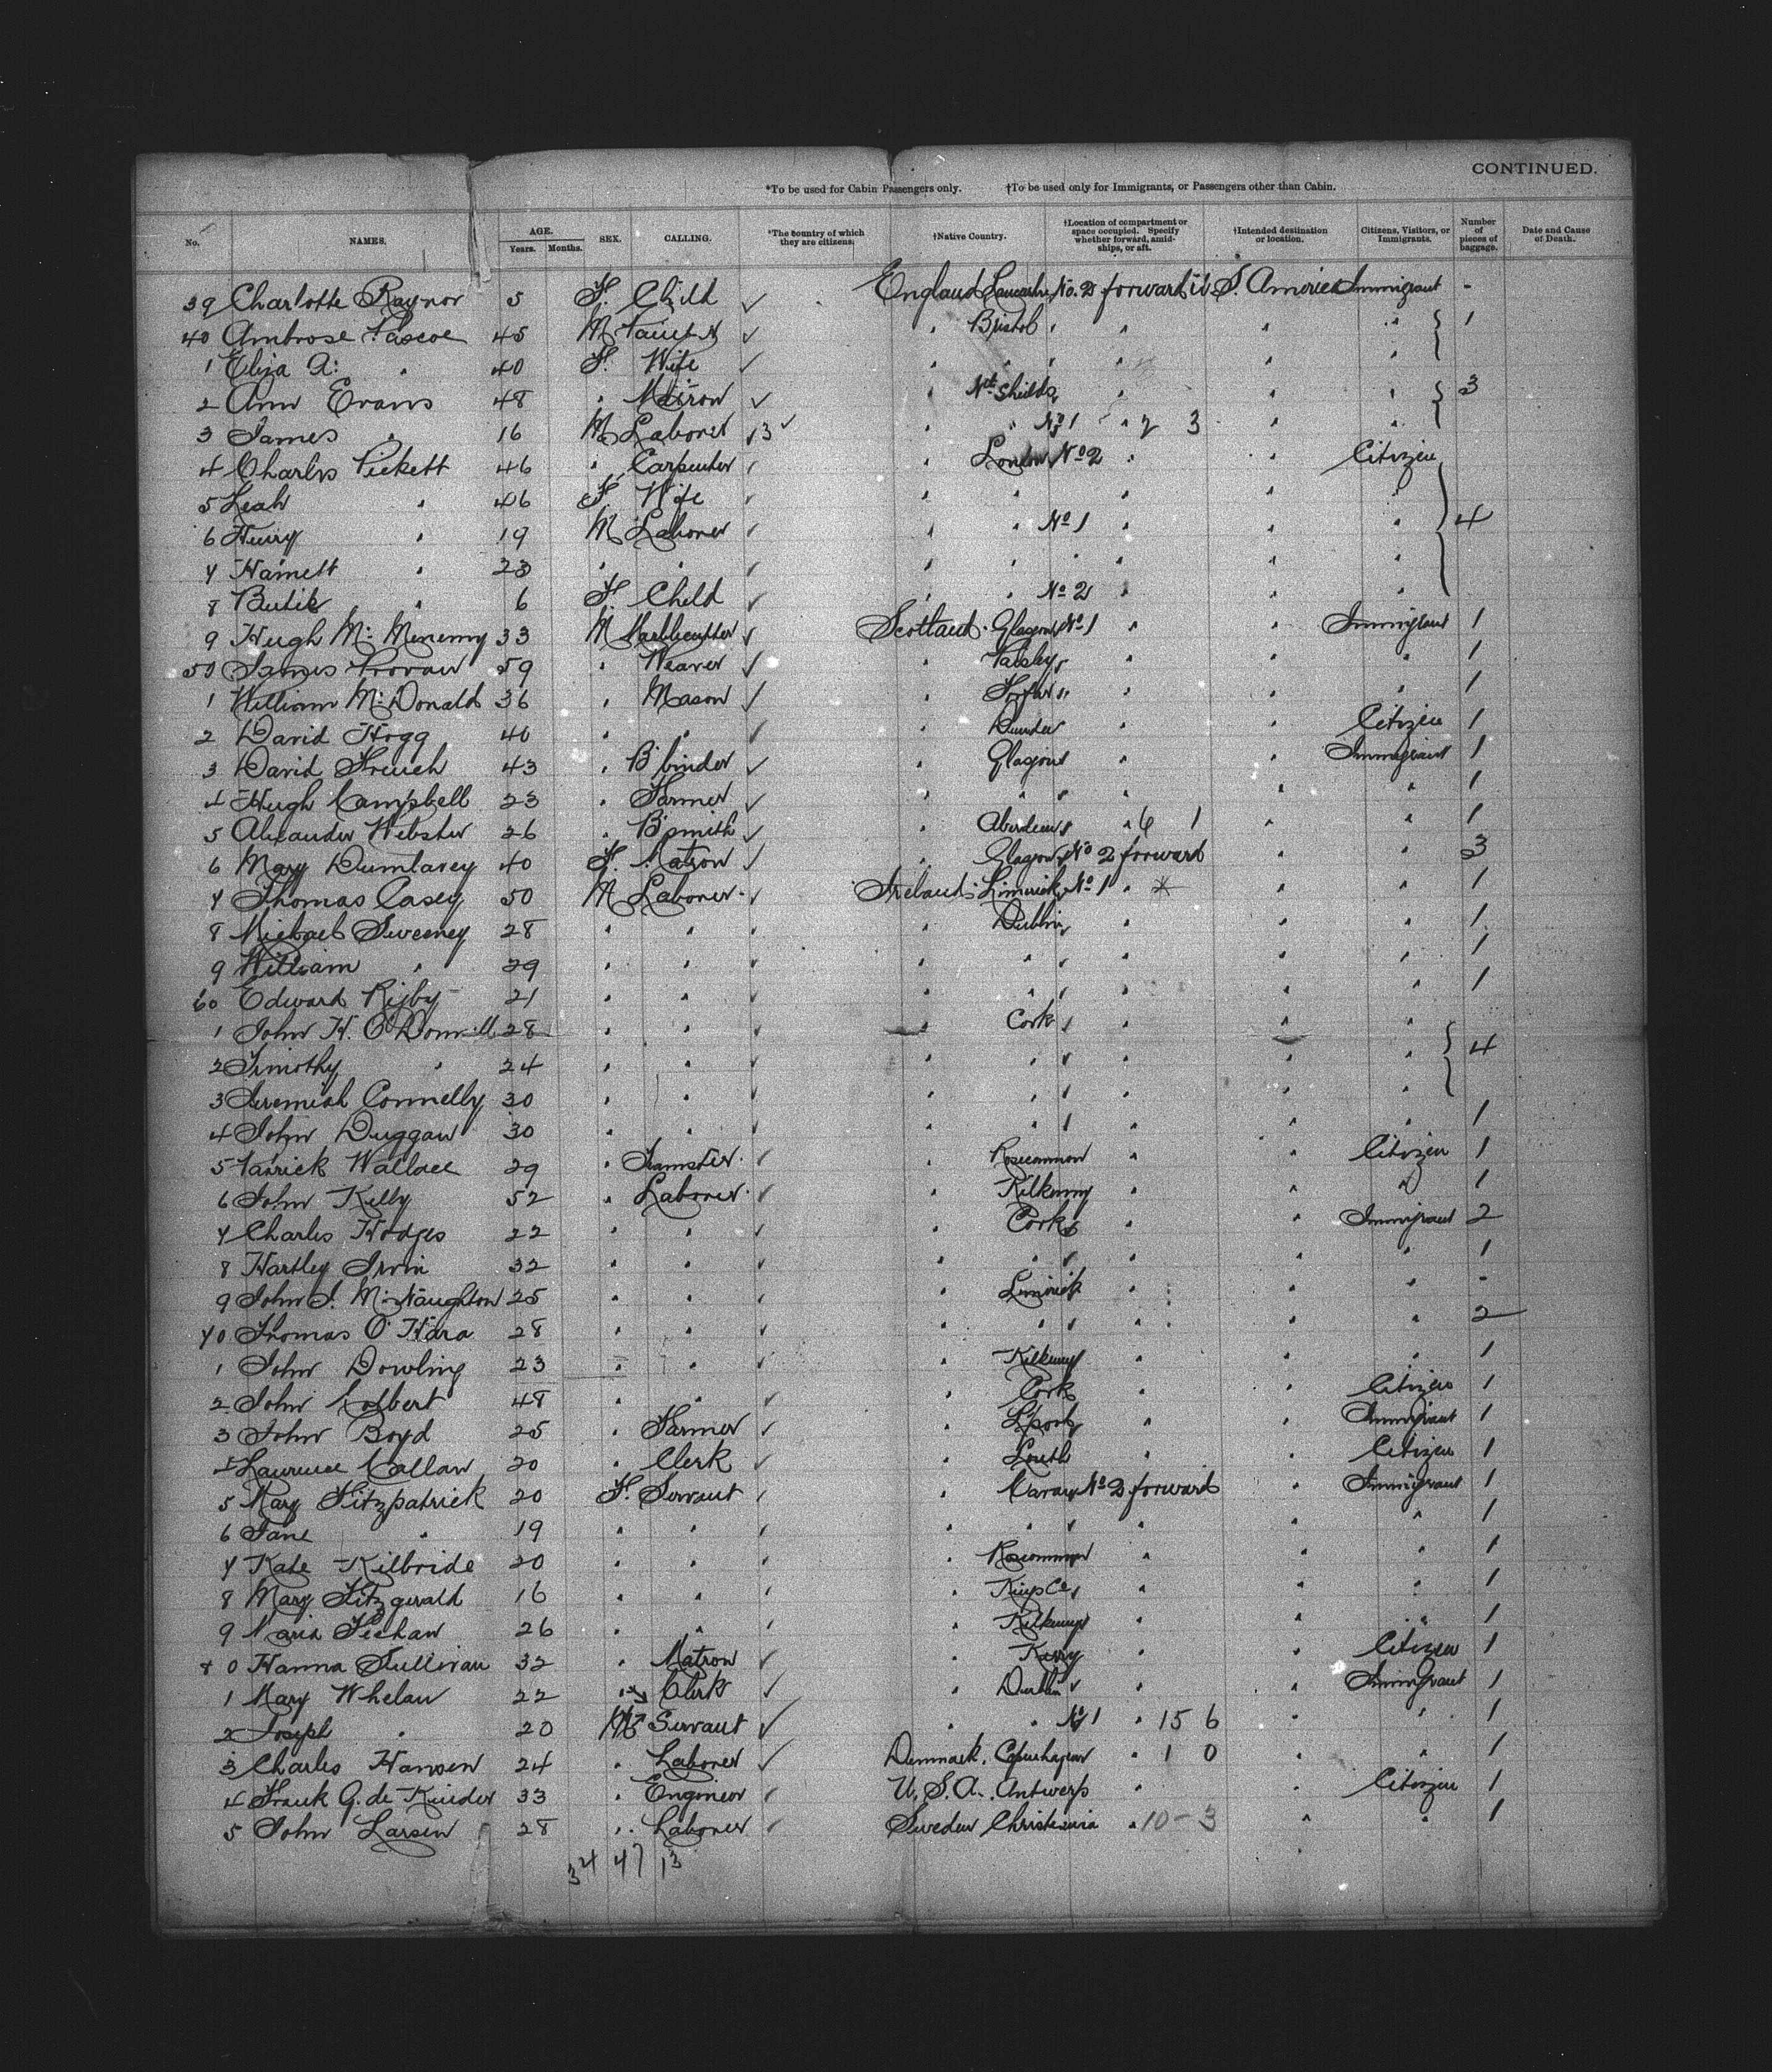 CONTINUED.
*To be used for Cabin Passengers only. †To be used only for Immigrants, or Passengers other than Cabin.
No. NAMES. AGE. Years. Months. SEX. CALLING. *The country of which they are citizens. †Native Country. †Location of compartment or space occupied. Specify whether forward, amidships, or aft. †Intended destination or location. Citizens, Visitors, or Immigrants. Number of pieces of baggage. Date and Cause of Death.
39 Charlotte Raynor 5 F. Child ✓ England Lancashire No. 2 forward U S. America Immigrant -
40 Ambrose Pascoe 45 M ✓ " Bristol " " " " 1
1 Eliza A: " 40 F. Wife ✓ " " " " " "
2 Ann Evans 48 " Matron ✓ " Nth Shields " " " 3
3 James " 16 M Laborer ✓ 3 ✓ " " No 1 " 2 3 " "
4 Charles Pickett 46 " Carpenter " London No 2 " " Citizen
5 Leah " 46 F Wife " " " " "
6 Henry " 19 M Laborer " " No 1 " " " 4
7 " 23 " " " " " " " "
8 " 6 F Child ✓ " " No 2 " " "
9 Hugh Mc Menemy 33 M Marblecutter ✓ Scotland Glasgow No 1 " " Immigrant 1
50 James Provan 59 " Weaver ✓ " Paisley " " " 1
1 William Mc Donald 36 " Mason ✓ " Forfar " " " " 1
2 David Hogg 40 " " ✓ " Dundee " " Citizen 1
3 David French 43 " B'binder ✓ " Glasgow " " Immigrant 1
4 Hugh Campbell 23 " Farmer ✓ " " " " " " 1
5 Alexander Webster 26 " B'smith ✓ " Aberdeen " " 6 1 " " 1
6 Mary 40 F. Matron ✓ " Glasgow No 2 forward " " 3
7 Thomas Casey 50 M Laborer ✓ Ireland Limerick No 1 " * " " 1
8 Michael Sweeney 28 " " ✓ " Dublin " " " 1
9 William " 29 " " ✓ " " " " " " 1
60 Edward Rigby 21 " " ✓ " " " " " " 1
1 John H. O'Donnell 28 " " ✓ " Cork " " " "
2 Timothy " 24 " " ✓ " " " " " " 4
3 Jeremiah Connelly 30 " " ✓ " " " " " "
4 John Duggan 30 " " ✓ " " " " " " 1
5 Patrick Wallace 29 " Teamster ✓ " Roscommon " " Citizen 1
6 John Kelly 52 " Laborer ✓ " Kilkenny " " " 1
7 Charles Hodges 22 " " ✓ " Cork " " Immigrant 2
8 Hartley Irvin 32 " " ✓ " " " " " " 1
9 John J. McNaughton 25 " " ✓ " Limerick " " " -
70 Thomas O'Hara 28 " " ✓ " " " " " " 2
1 John Dowling 23 " " ✓ " Kilkenny " " " 1
2 John Colbert 48 " " ✓ " Cork " " Citizen 1
3 John Boyd 25 " Farmer ✓ " L'pool " " Immigrant 1
4 Laurence Callan 20 " Clerk ✓ " Louth " " Citizen 1
5 Mary Fitzpatrick 20 F. Servant " Cavan No 2 forward " Immigrant 1
6 Jane " 19 " " " " " " " " 1
7 Kate Kilbride 20 " " " Roscommon " " " 1
8 Mary Fitzgerald 16 " " " Kings Co " " " 1
9 Maria 26 " " " Kilkenny " " " 1
80 Hanna Sullivan 32 " Matron ✓ " Kerry " " Citizen 1
1 Mary Whelan 22 " Clerk ✓ " Dublin " " Immigrant 1
2 Joseph " 20 M Servant ✓ " " No 1 " 15 6 " " 1
3 Charles Hansen 24 " Laborer ✓ Denmark. Copenhagen " 1 0 " " 1
4 Frank G. de Kuider 33 " Engineer ✓ U. S. A. Antwerp " " Citizen 1
5 John Larsen 28 " Laborer ✓ Sweden Christiania " 10 - 3 " " 1
34 47 13